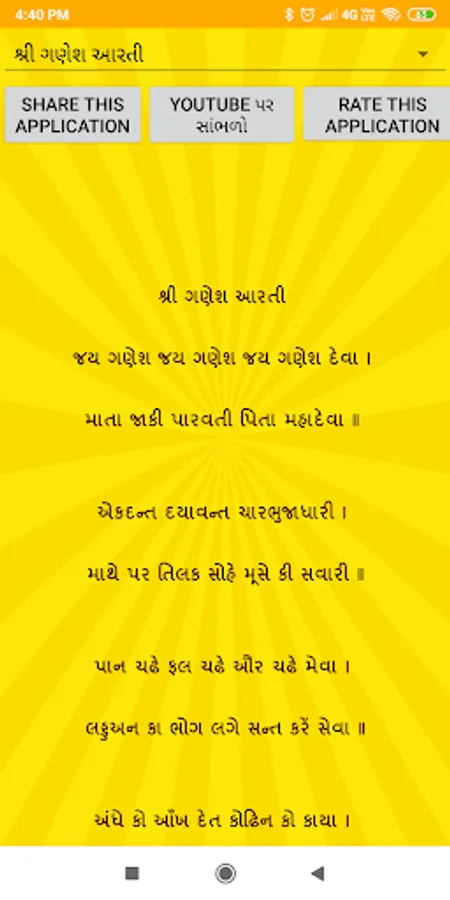 4:40 PM 4G Vo LTE 63
શ્રી ગણેશ આરતી
SHARE THIS APPLICATION
YOUTUBE પર સાંભળો
RATE THIS APPLICATION
શ્રી ગણેશ આરતી
જય ગણેશ જય ગણેશ જય ગણેશ દેવા ।
માતા જાકી પારવતી પિતા મહાદેવા ॥
એકદન્ત દયાવન્ત ચારભુજાધારી ।
માથે પર તિલક સોહે મૂસે કી સવારી ॥
પાન ચઢે ફલ ચઢે ઔર ચઢે મેવા ।
લડુઅન કા ભોગ લગે સન્ત કરેં સેવા ॥
અંધે કો આઁખ દેત કોઢિન કો કાયા ।